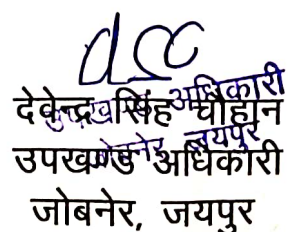 देवेन्द्र सिंह चौहान
उपखण्ड अधिकारी
जोबनेर, जयपुर
अधिकारी
जोबनेर जयपुर